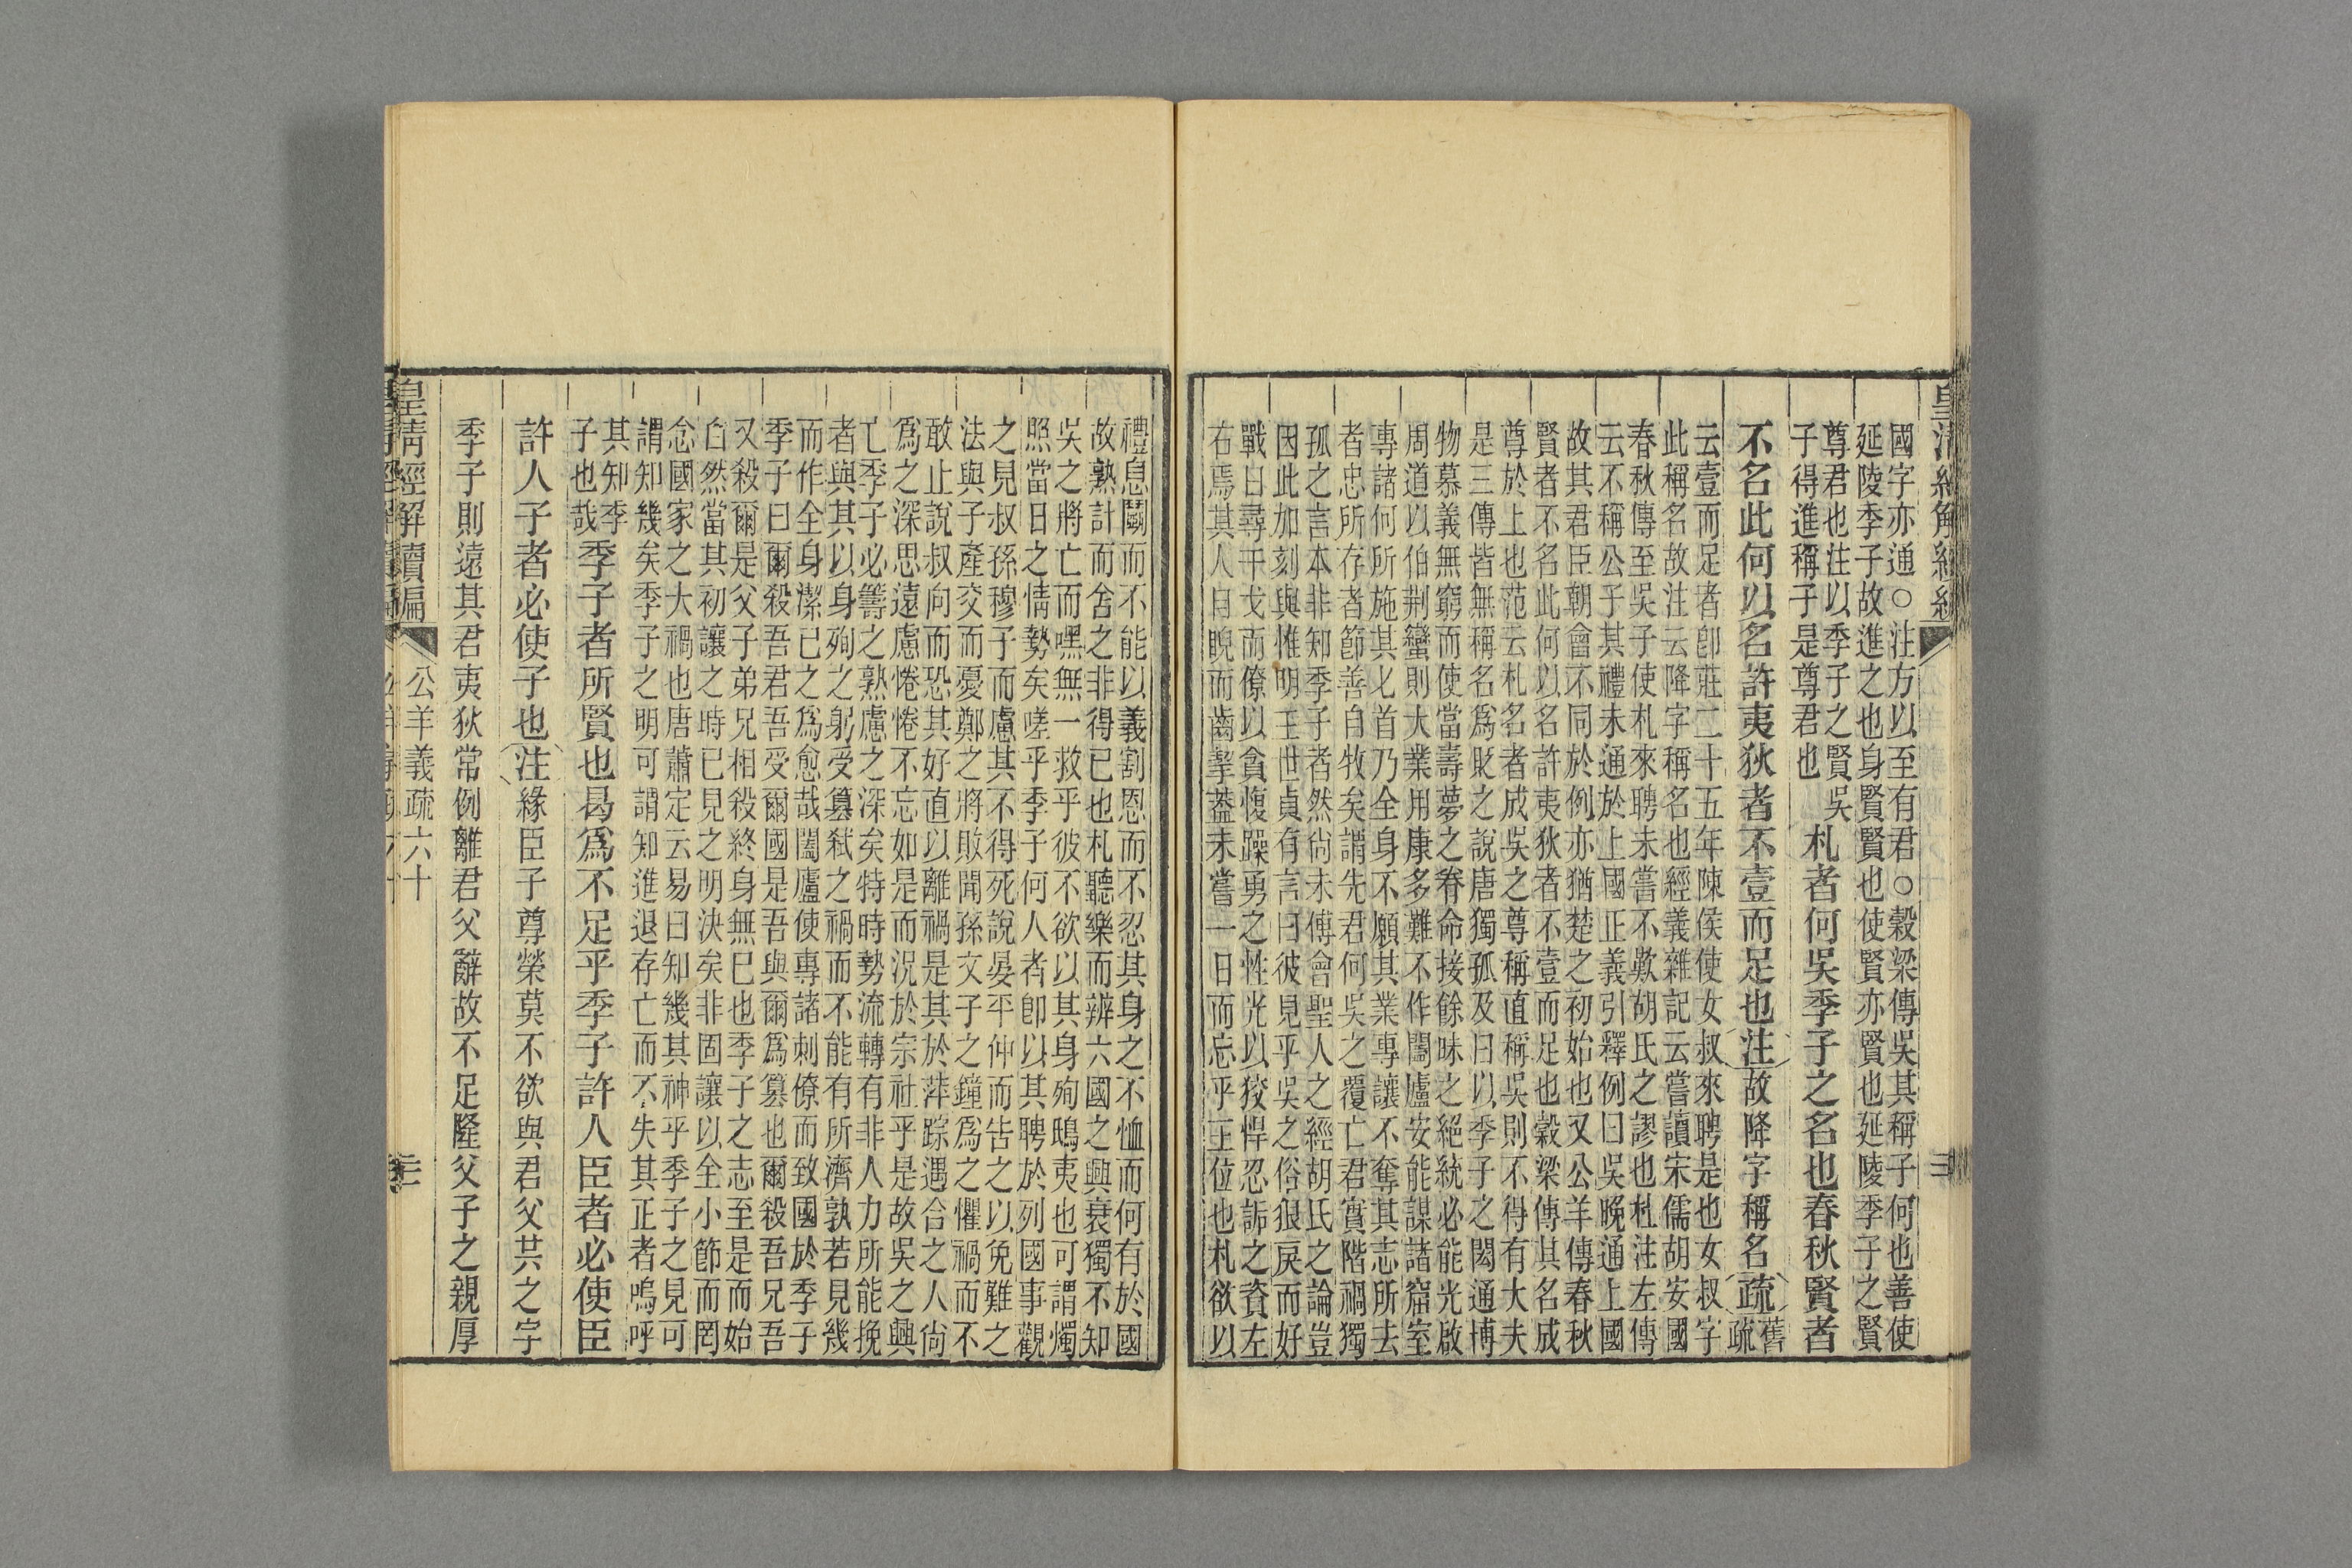 國字亦通○注方以至有君○穀梁傳吳其稱子何也善使
延陵季子故進之也身賢賢也使賢亦賢也延陵季子之賢
尊君也注以季子之賢吳
子得進稱子是尊君也
札者何吳季子之名也春秋賢者
不名此何以名許夷狄者不壹而足也注故降字稱名疏舊
疏
云壹而足者卽莊二十五年陳侯使女叔來聘是也女叔字
此稱名故注云降字稱名也經義雜記云嘗讀宋儒胡安國
春秋傳至吳子使札來聘未嘗不歎胡氏之謬也杜注左傳
云不稱公子其禮未通於上國正義引釋例曰吳晚通上國
故其君臣朝會不同於例亦猶楚之初始也又公羊傳春秋
賢者不名此何以名許夷狄者不壹而足也穀梁傳其名成
尊於上也范云札名者成吳之尊稱直稱吳則不得有大夫
是三傳皆無稱名爲貶之說唐獨孤及曰以季子之閎通博
物慕義無窮而使當壽夢之眷命接餘昧之絕統必能光啟
周道以伯荆蠻則大業用康多難不作闔廬安能謀諸窟室
專諸何所施其匕首乃全身不願其業專讓不奪其志所去
者忠所存者節善自牧矣謂先君何吳之覆亡君實階禍獨
孤之言本非知季子者然尙未傅會聖人之經胡氏之論豈
因此加刻與惟明王世貞有言曰彼見乎吳之俗狠戾而好
戰日尋干戈而僚以貪愎躁勇之性光以狡悍忍詬之資左
右焉其人自睨而齒擊蓋未嘗一日而忘乎王位也札欲以
禮息鬭而不能以義割恩而不忍其身之不恤而何有於國
故熟計而舍之非得已也札聽樂而辨六國之興衰獨不知
吳之將亡而嘿無一救乎彼不欲以其身殉鴟夷也可謂燭
照當日之情勢矣嗟乎季子何人者卽以其聘於列國事觀
之見叔孫穆子而慮其不得死說晏平仲而告之以免難之
法與子產交而憂鄭之將敗聞孫文子之鐘爲之懼禍而不
敢止說叔向而恐其好直以離禍是其於萍踪遇合之人尙
爲之深思遠慮惓惓不忘如是而況於宗社乎是故吳之興
亡季子必籌之熟慮之深矣特時勢流轉有非人力所能挽
者與其以身殉之躬受篡弒之禍而不能有所濟孰若見幾
而作全身潔已之爲愈哉闔廬使專諸刺僚而致國於季子
季子曰爾殺吾君吾受爾國是吾與爾爲篡也爾殺吾兄吾
又殺爾是父子弟兄相殺終身無已也季子之志至是而始
白然當其初讓之時已見之明決矣非固讓以全小節而罔
念國家之大禍也唐蕭定云易曰知幾其神乎季子之見可
謂知幾矣季子之明可謂知進退存亡而不失其正者嗚呼
其知季
子也哉
季子者所賢也曷爲不足乎季子許人臣者必使臣
許人子者必使子也注緣臣子尊榮莫不欲與君父共之字
季子則遠其君夷狄常例離君父辭故不足隆父子之親厚
皇清經解續編
公羊義疏六十
三